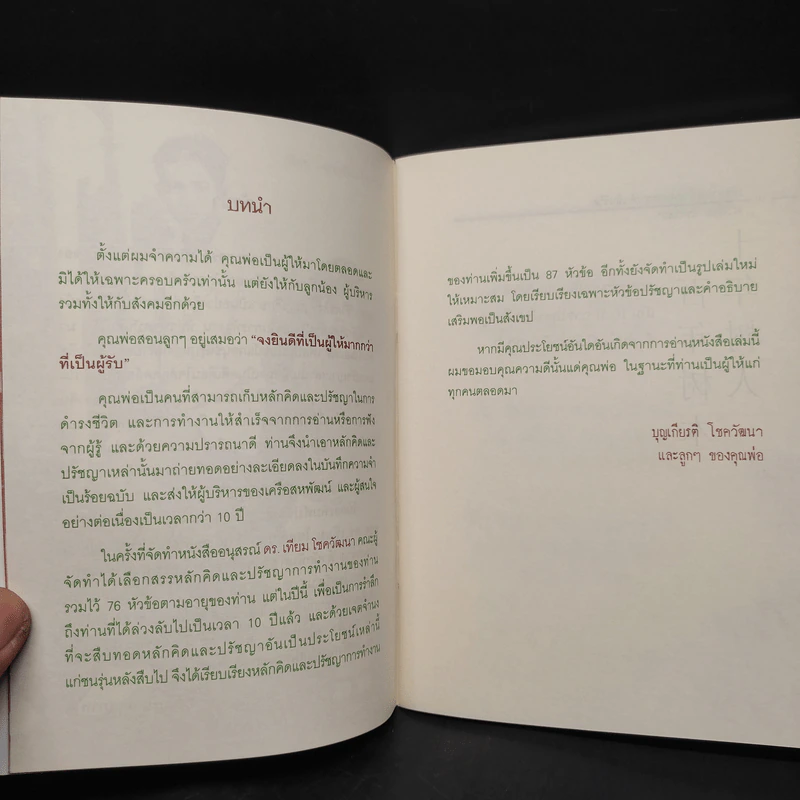 บทนำ
ตั้งแต่ผมจำความได้ คุณพ่อเป็นผู้ให้มาโดยตลอดและ
มิได้ให้เฉพาะครอบครัวเท่านั้น แต่ยังให้กับลูกน้อง ผู้บริหาร
รวมทั้งให้กับสังคมอีกด้วย
คุณพ่อสอนลูกๆ อยู่เสมอว่า "จงยินดีที่เป็นผู้ให้มากกว่า
ที่เป็นผู้รับ"
คุณพ่อเป็นคนที่สามารถเก็บหลักคิดและปรัชญาในการ
ดำรงชีวิต และการทำงานให้สำเร็จจากการอ่านหรือการฟัง
จากผู้รู้ และด้วยความปรารถนาดี ท่านจึงนำเอาหลักคิดและ
ปรัชญาเหล่านั้นมาถ่ายทอดอย่างละเอียดลงในบันทึกความจำ
เป็นร้อยฉบับ และส่งให้ผู้บริหารของเครือสหพัฒน์ และผู้สนใจ
อย่างต่อเนื่องเป็นเวลากว่า 10 ปี
ในครั้งที่จัดทำหนังสืออนุสรณ์ ดร. เทียม โชควัฒนา คณะผู้
จัดทำได้เลือกสรรหลักคิดและปรัชญาการทำงานของท่าน
รวมไว้ 76 หัวข้อตามอายุของท่าน แต่ในปีนี้ เพื่อเป็นการรำลึก
ถึงท่านที่ได้ล่วงลับไปเป็นเวลา 10 ปีแล้ว และด้วยเจตจำนง
ที่จะสืบทอดหลักคิดและปรัชญาอันเป็นประโยชน์เหล่านี้
แก่ชนรุ่นหลังสืบไป จึงได้เรียบเรียงหลักคิดและปรัชญาการทำงาน
ของท่านเพิ่มขึ้นเป็น 87 หัวข้อ อีกทั้งยังจัดทำเป็นรูปเล่มใหม่
ให้เหมาะสม โดยเรียบเรียงเฉพาะหัวข้อปรัชญาและคำอธิบาย
เสริมพอเป็นสังเขป
หากมีคุณประโยชน์อันใดอันเกิดจากการอ่านหนังสือเล่มนี้
ผมขอมอบคุณความดีนั้นแด่คุณพ่อ ในฐานะที่ท่านเป็นผู้ให้แก่
ทุกคนตลอดมา
บุญเกียรติ โชควัฒนา
และลูกๆ ของคุณพ่อ